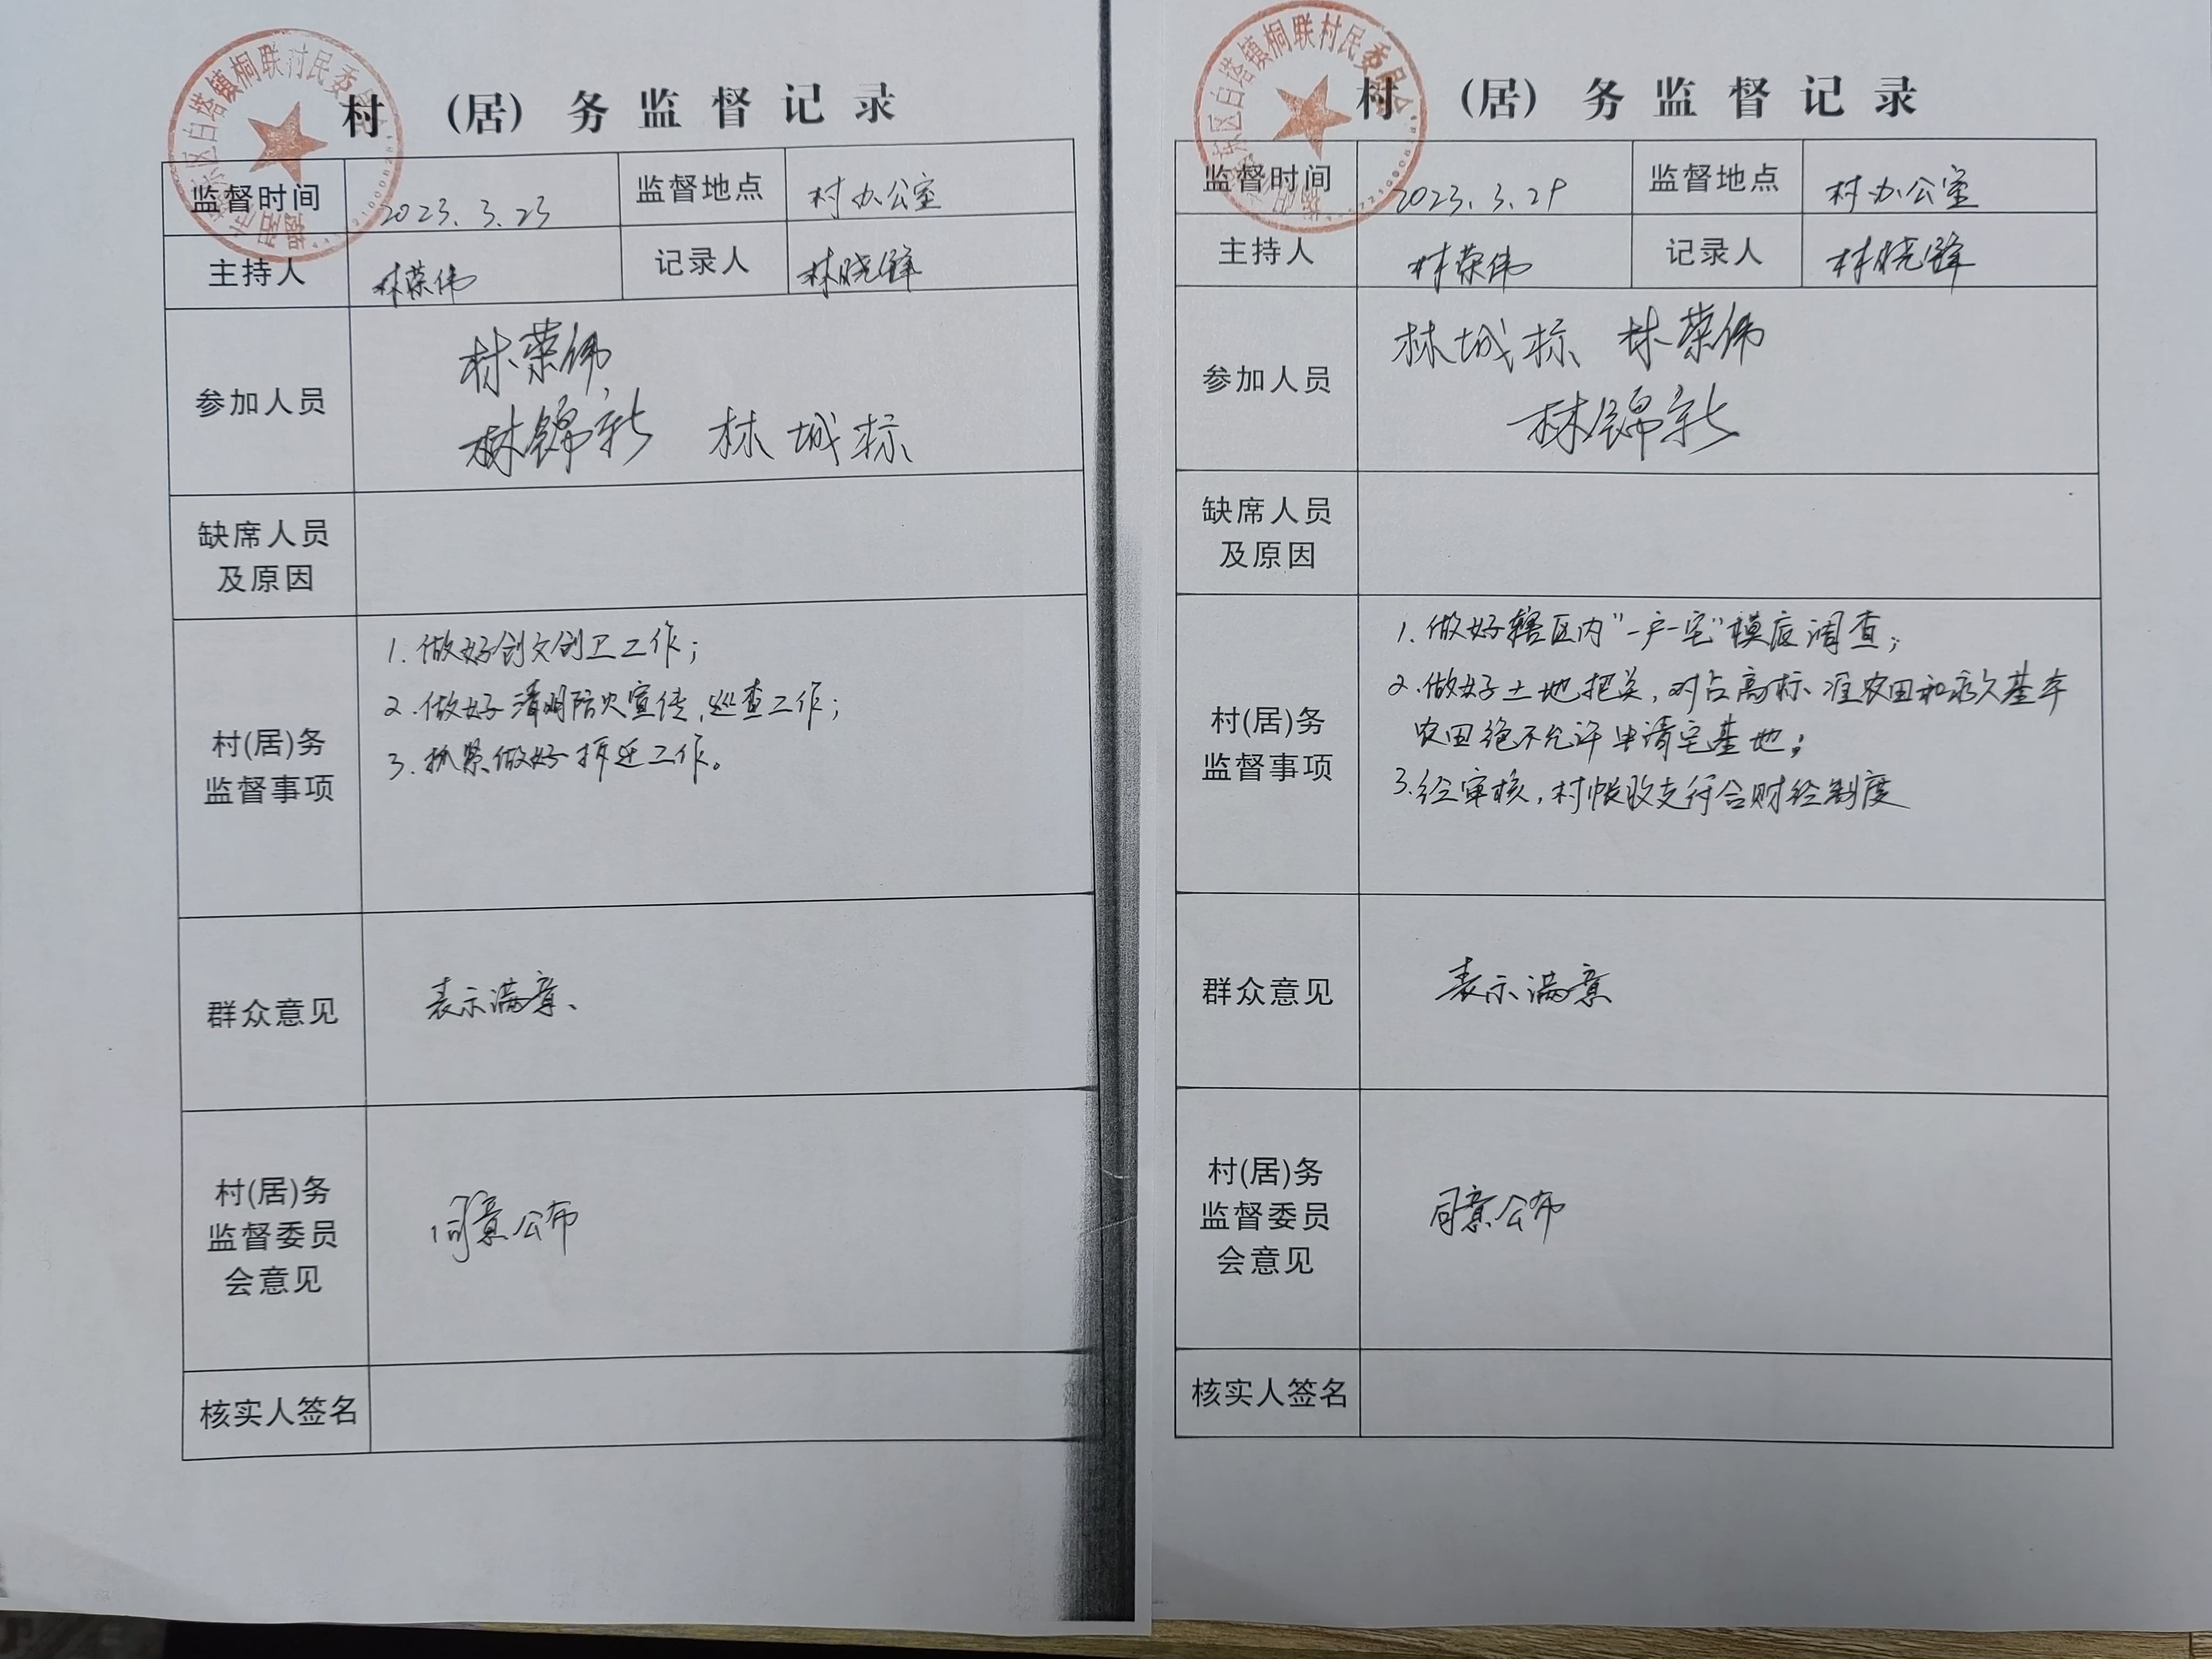 村 (居) 务监督记录
监督时间 2023.3.23 监督地点 村办公室
主持人 林荣伟 记录人 林晓锋
参加人员
林荣伟
林锦新 林城标
缺席人员
及原因
村(居)务
监督事项
1.做好创文创卫工作;
2.做好清明防火宣传、巡查工作;
3.抓紧做好拆迁工作。
群众意见 表示满意、
村(居)务
监督委员
会意见
同意公布
核实人签名
白塔镇桐联村民委员
村 (居) 务监督记录
监督时间 2023.3.29 监督地点 村办公室
主持人 林荣伟 记录人 林晓锋
参加人员
林城标、林荣伟
林锦新
缺席人员
及原因
村(居)务
监督事项
1.做好辖区内"一户一宅"模底调查;
2.做好土地把关,对占高标准农田和永久基本
农田绝不允许申请宅基地;
3.经审核,村帐收支符合财经制度
群众意见 表示满意
村(居)务
监督委员
会意见
同意公布
核实人签名
区白塔镇桐联村民委员会